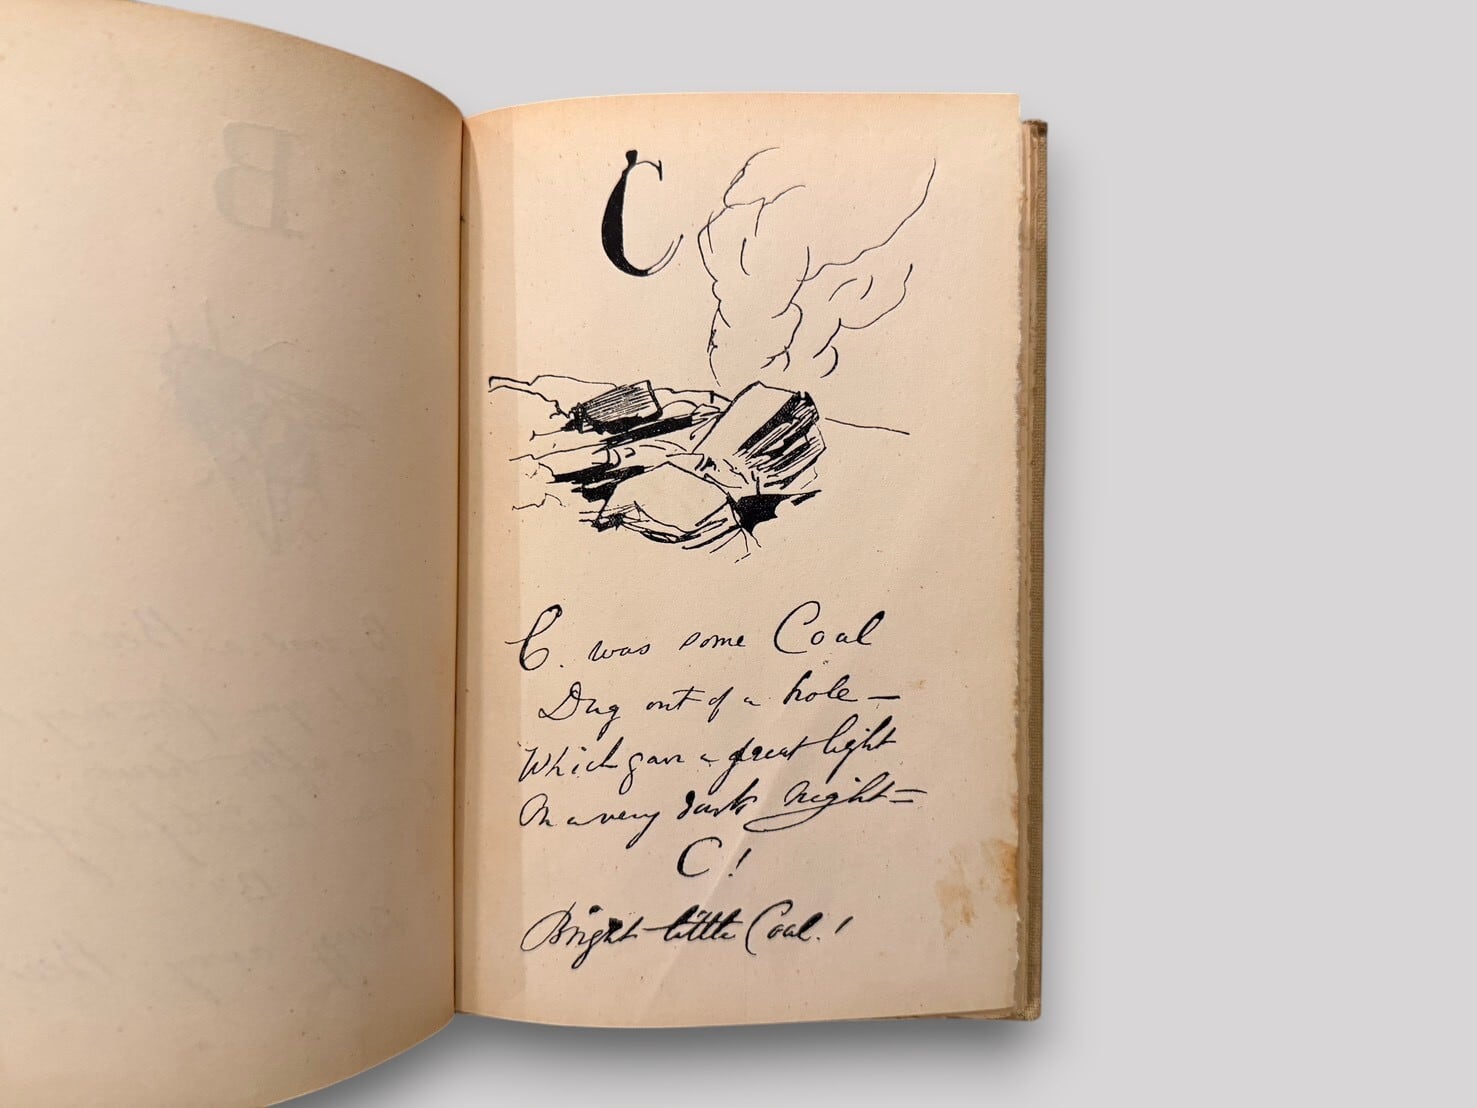 B
C
C. was some Coal
Dug out of a hole —
Which gave a great light
On a very dark night =
C!
Bright little Coal!